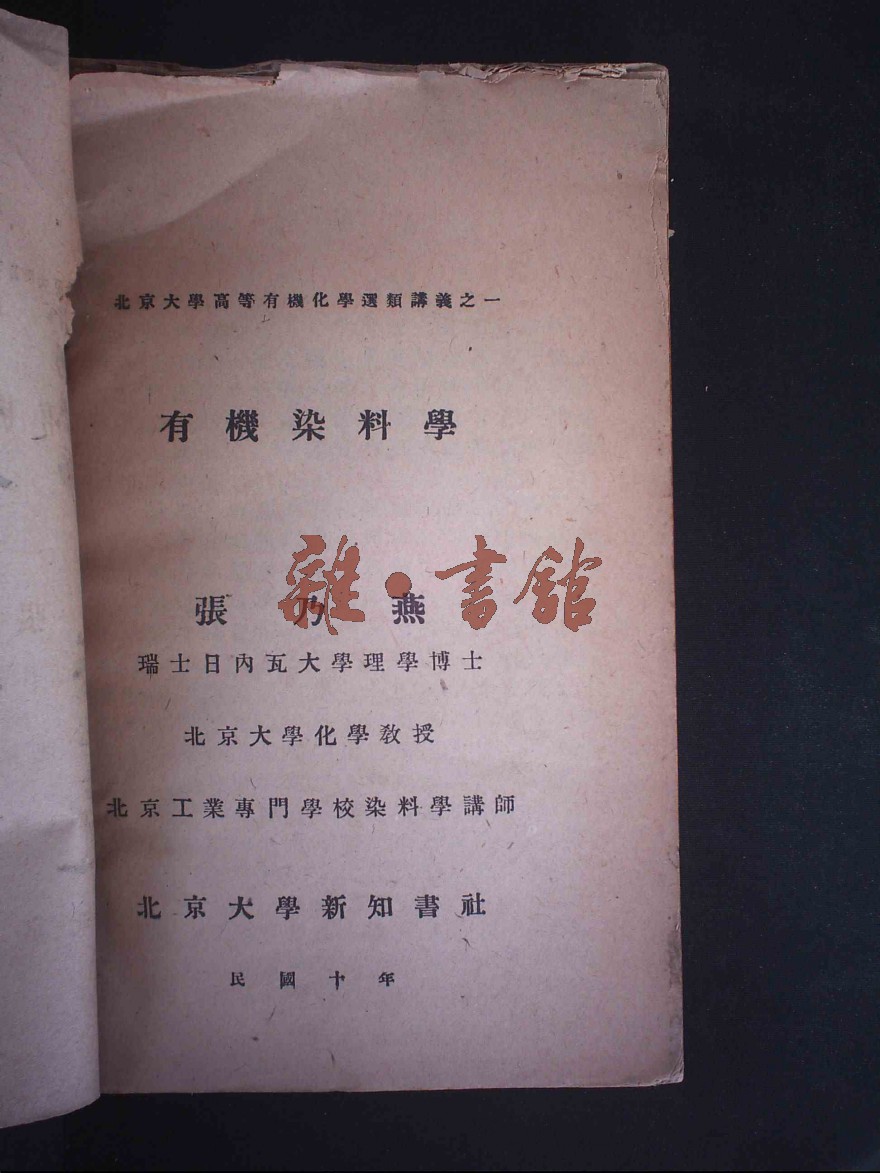 北京大學高等有機化學選類講義之一
有機染料學
雜·書館
張乃燕
瑞士日內瓦大學理學博士
北京大學化學教授
北京工業專門學校染料學講師
北京大學新知書社
民國十年